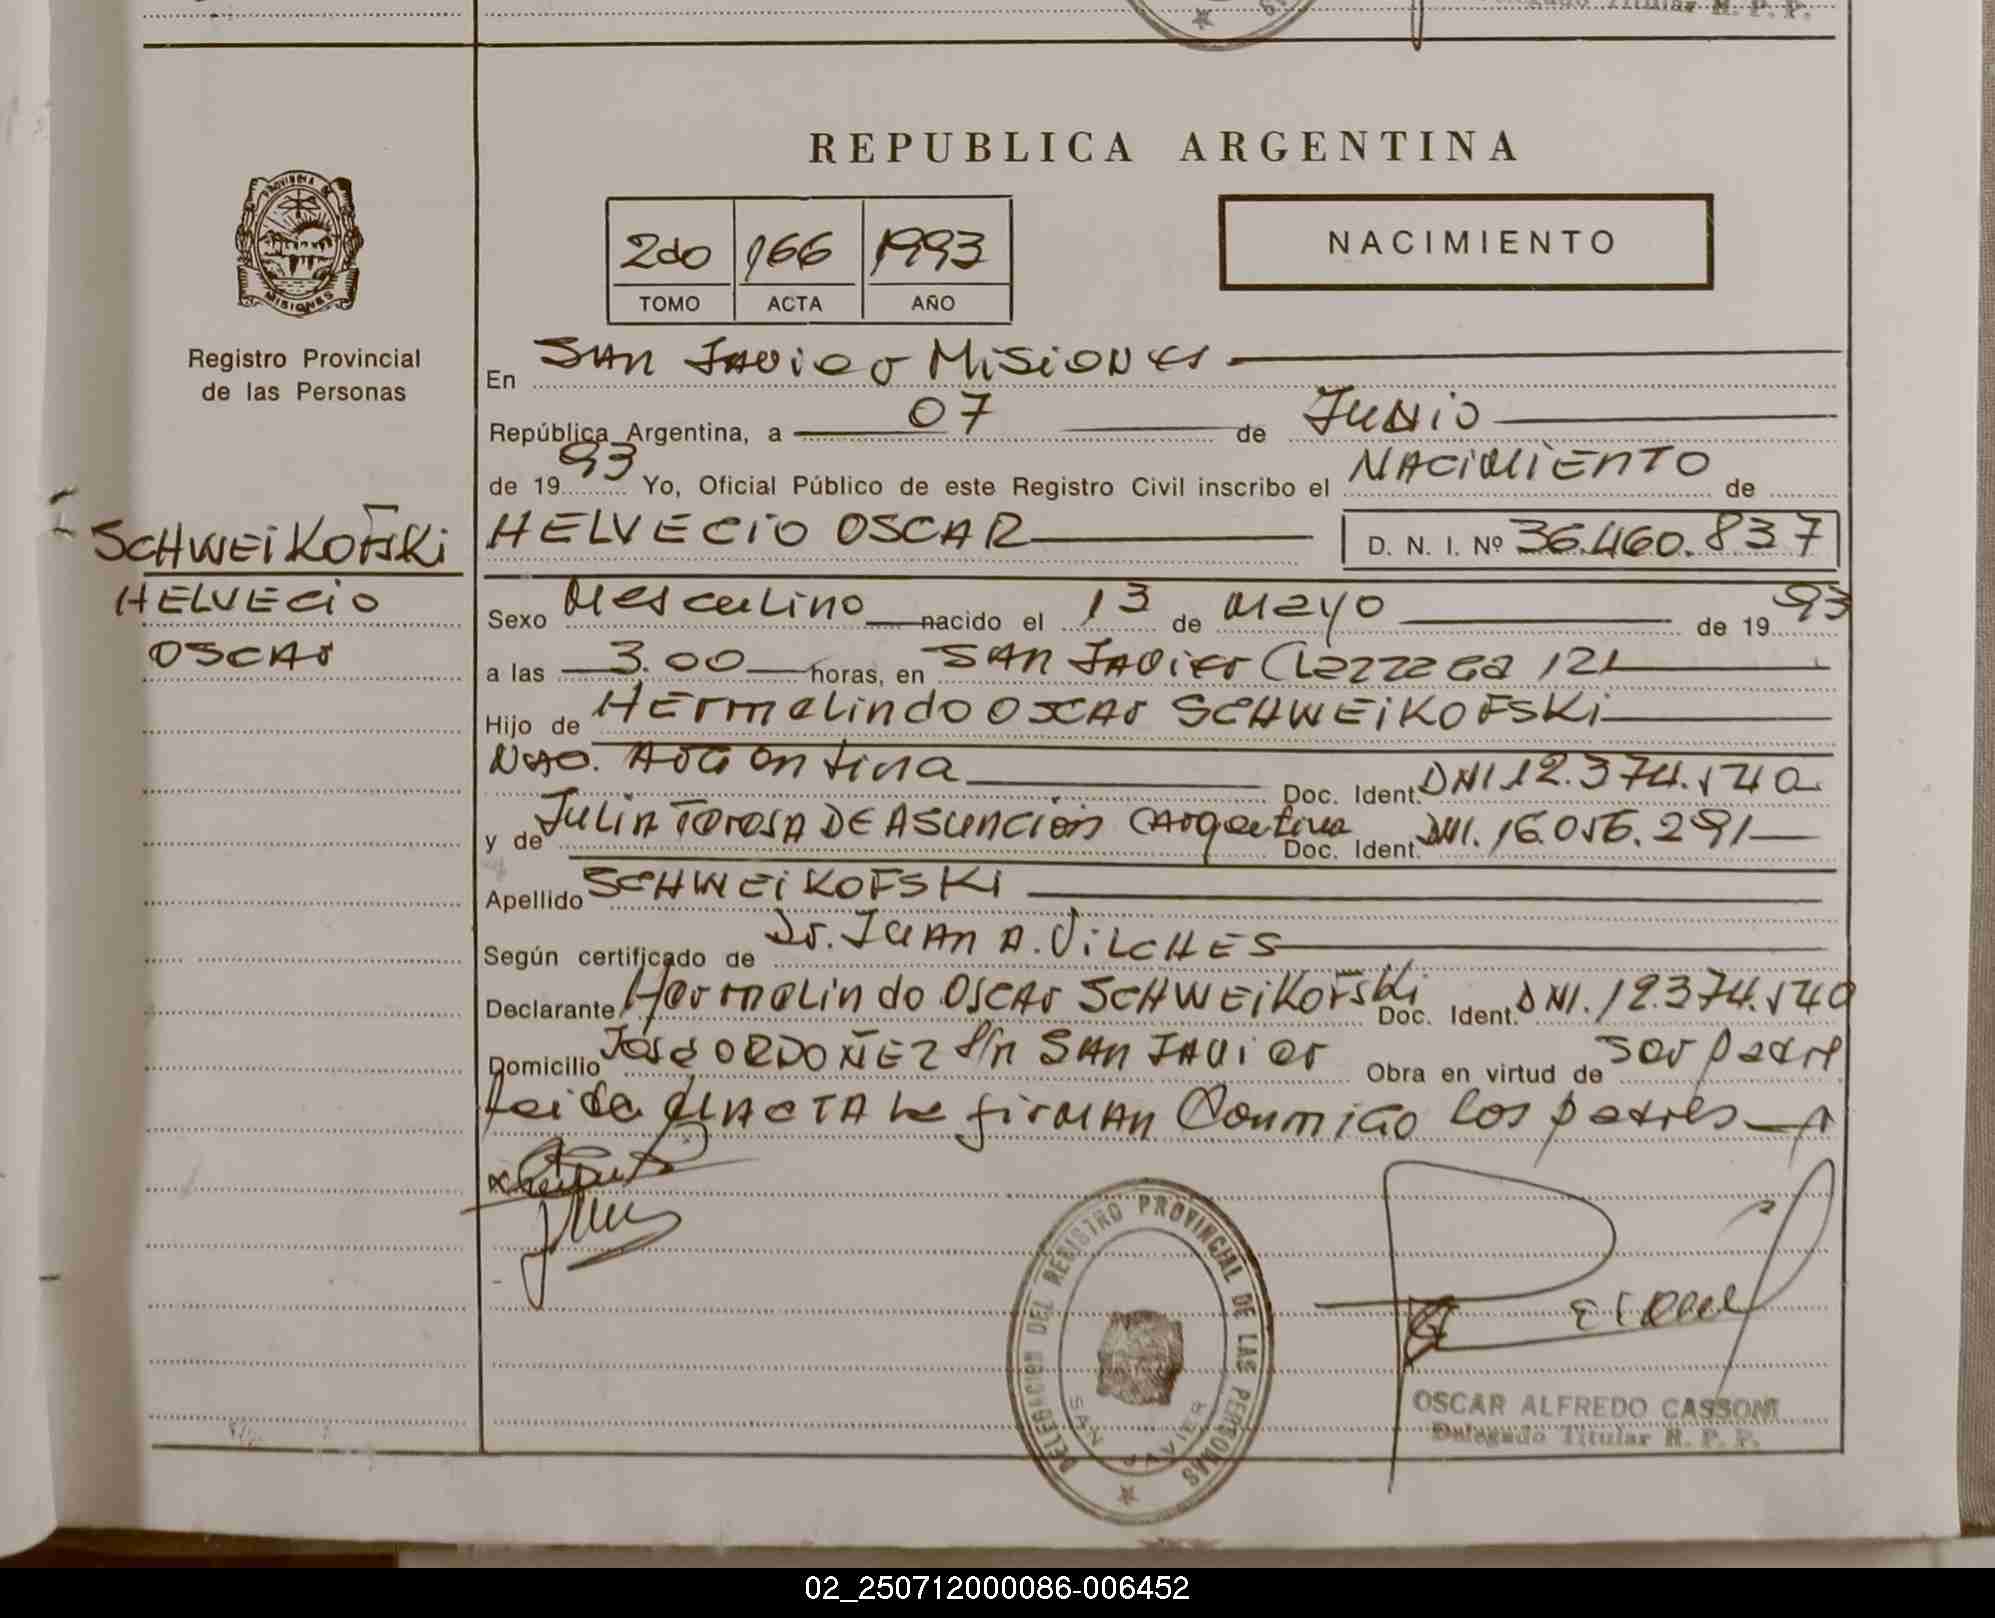 Delegado Titular R. P. P.
REPUBLICA ARGENTINA
PROVINCIA DE
MISIONES
2do 166 1993
TOMO ACTA AÑO
NACIMIENTO
Registro Provincial
de las Personas
En San Javier Misiones
República Argentina, a 07 de Junio
de 1993 Yo, Oficial Público de este Registro Civil inscribo el NACIMIENTO de
SCHWEIKOFSKi
HELVECIO OSCAR D. N. I. Nº 36.460.837
HELVECIO
OSCAR
Sexo Masculino nacido el 13 de Mayo de 1993
a las 3.00 horas, en SAN JAVIER
Hijo de Hermelindo OSCAR SCHWEiKOFSKi
Nac. Argentina Doc. Ident. DNI 12.374.540
y de Julia Teresa DE ASUNCION (Argentina Doc. Ident. DNI. 16.056.291
Apellido SCHWEiKOFSKi
Según certificado de Dr. JUAN A. VILCHES
Declarante Hermelindo OSCAR SCHWEiKOFSKi Doc. Ident. DNI. 12.374.540
Domicilio José ORDOÑEZ S/n SAN JAVIER Obra en virtud de ser padre
Leida el ACTA la firman Conmigo los padres
DELEGACION DEL REGISTRO PROVINCIAL DE LAS PERSONAS
SAN JAVIER
OSCAR ALFREDO CASSONI
Delegado Titular R. P. P.
02_250712000086-006452